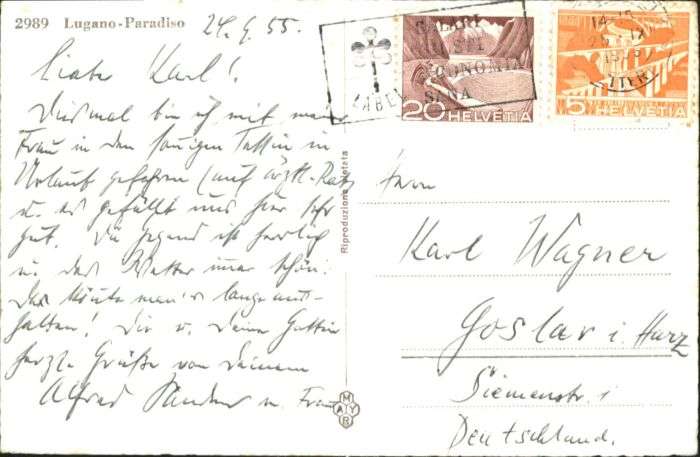 2989 Lugano-Paradiso
24.9.55.
Liebe Karl!
Diesmal bin ich mit meiner
Frau in den sonnigen Tessin in
Urlaub gefahren (auf ärztl. Rat)
u. es gefällt uns hier sehr
gut. Die Gegend ist herrlich
u. das Wetter immer schön.
Das könnte man's lange aus-
halten! Dir u. Deine Gattin
herzl. Grüße von Deinem
Alfred u. Frau
Riproduzione vietata
MAYR
LABEL
20 HELVETIA
5 HELVETIA
Herrn
Karl Wagner
Goslar i. Harz
Siemensstr. 1
Deutschland.